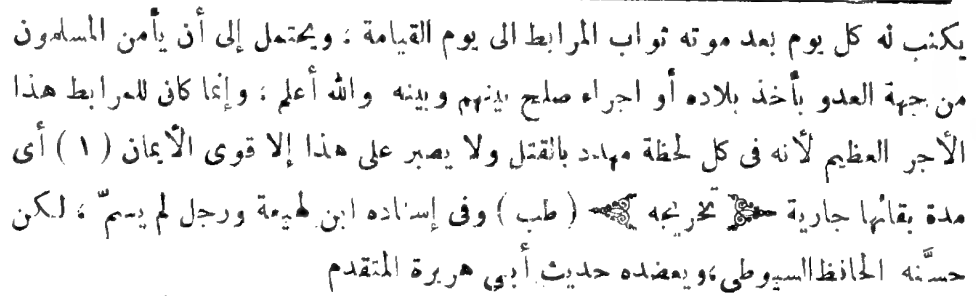 يكتب له كل يوم بعد موته ثواب المرابط الى يوم القيامة ، ويحتمل إلى أن يأمن المسلمون
من جهة العدو بأخذ بلاده أو اجراء صلح بينهم وبينه والله أعلم ، وإنما كان للمرابط هذا
الأجر العظيم لأنه فى كل لحظة مهدد بالقتل ولا يصبر على هذا إلا قوى الأيمان ( ١ ) أى
مدة بقائها جارية تخريجه ( طب ) وفى إسناده ابن لهيعة ورجل لم يسمّ ، لكن
حسَّنه الحافظ السيوطى ، ويعضده حديث أبي هريرة المتقدم